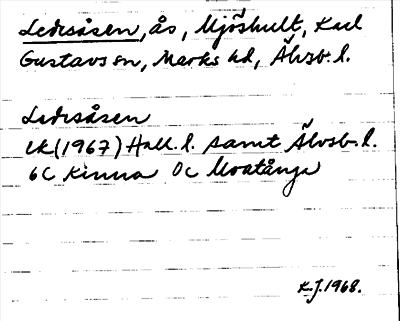 Ledsåsen, ås, Mjöshult, Karl
Gustavs sn, Marks hd, Älvsb. l.
Ledsåsen
ek (1967) Hall. l. samt Älvsb. l.
6C Kinna 0c Moatånga
K.J. 1968.